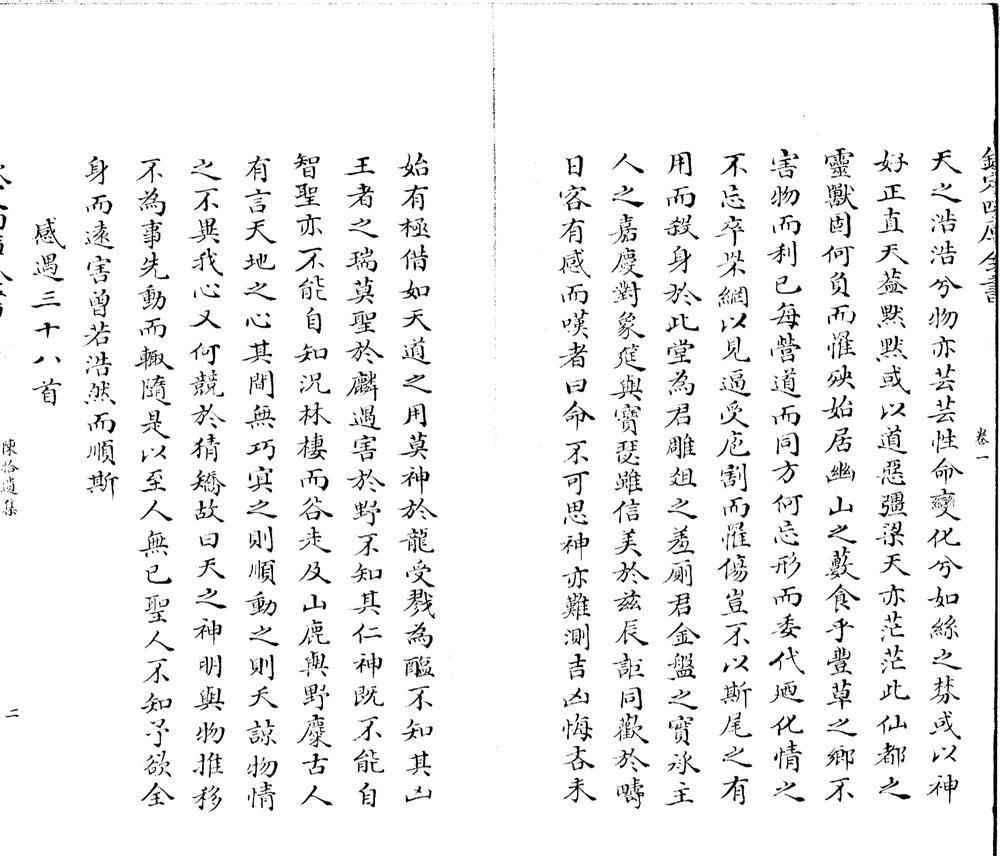 欽定四庫全書
卷一
天之浩浩兮物亦芸芸性命變化兮如絲之棼或以神
好正直天蓋默默或以道惡彊梁天亦茫茫此仙都之
靈獸固何負而罹殃始居幽山之藪食乎豐草之鄉不
害物而利已每營道而同方何忘形而委代廼化情之
不忘卒罘網以見逼受庖割而罹傷豈不以斯尾之有
用而殺身於此堂為君雕俎之羞厠君金盤之實承主
人之嘉慶對象筵與寶瑟雖信美於兹辰詎同歡於疇
日客有感而嘆者曰命不可思神亦難測吉凶悔吝未
始有極借如天道之用莫神於龍受戮為醢不知其凶
王者之瑞莫聖於麟遇害於野不知其仁神既不能自
智聖亦不能自知况林棲而谷走及山鹿與野麋古人
有言天地之心其間無巧㝠之則順動之則天諒物情
之不異我心又何競於猜矯故曰天之神明與物推移
不為事先動而輒隨是以至人無已聖人不知予欲全
身而遠害曾若浩然而順斯
感遇三十八首
陳拾遺集
二